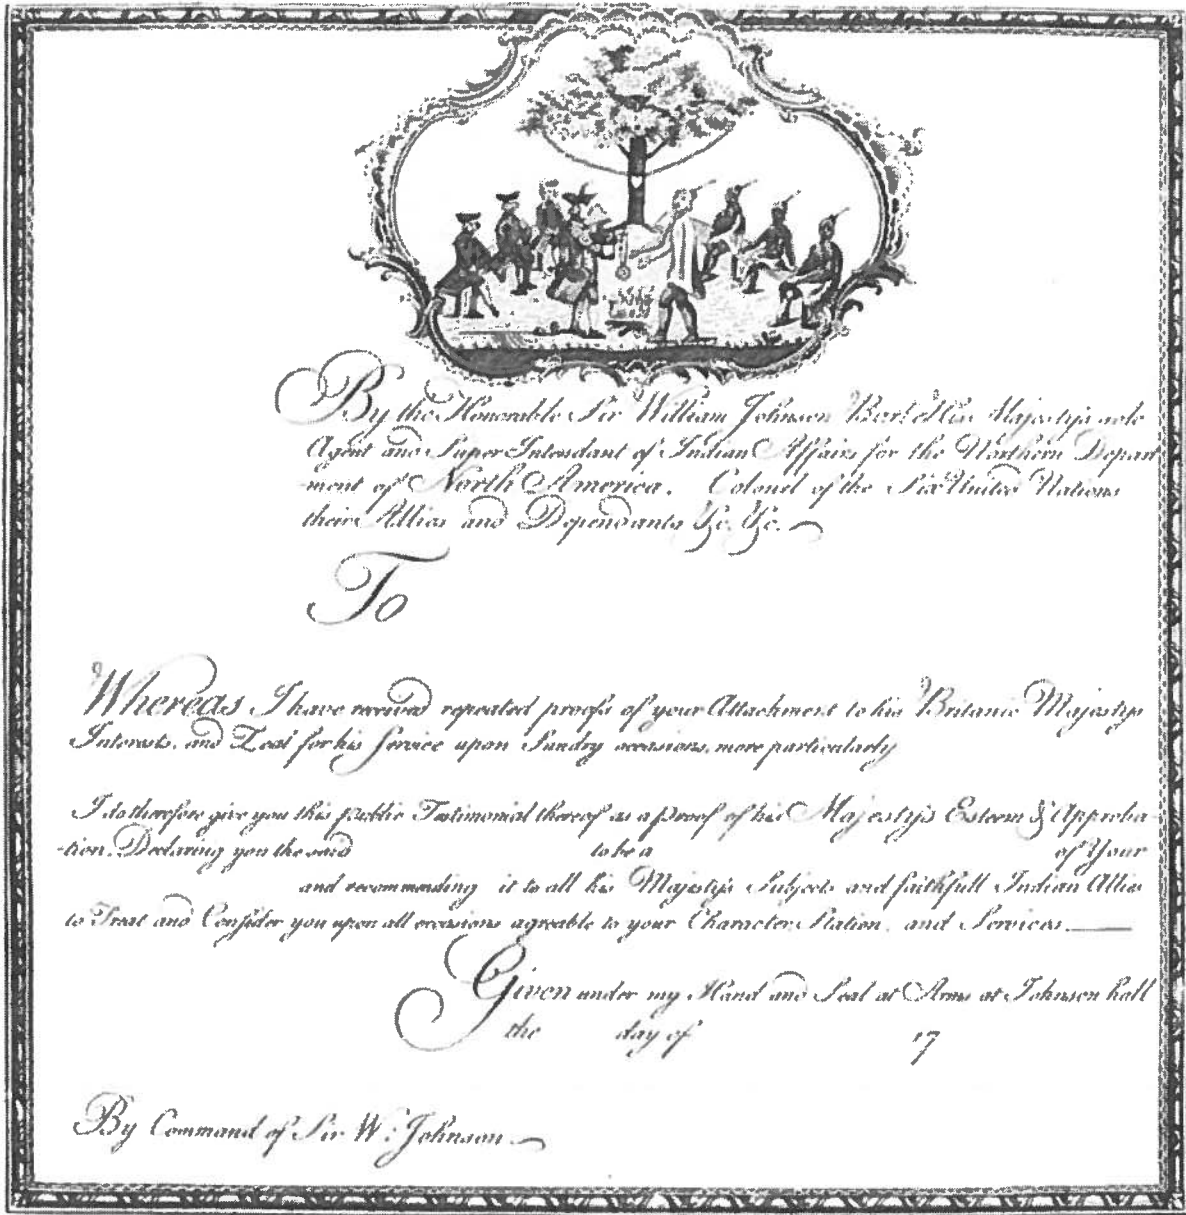 By the Honorable Sir William Johnson Bart. His Majesty's sole
Agent and Super Intendant of Indian Affairs for the Northern Depart
ment of North America. Colonel of the Six United Nations
their Allies and Dependants &c. &c.
To
Whereas I have received repeated proofs of your Attachment to his Britanic Majestys
Interests, and Zeal for his Service upon Sundry occasions, more particularly
I do therefore give you this public Testimonial thereof as a proof of his Majesty's Esteem & Approba
-tion, Declaring you the said to be a of Your
and recommending it to all his Majesty's Subjects and faithfull Indian Allies
to Treat and Consider you upon all occasions agreable to your Character, Station, and Services.
Given under my Hand and Seal at Arms at Johnson hall
the day of 17
By Command of Sir W: Johnson